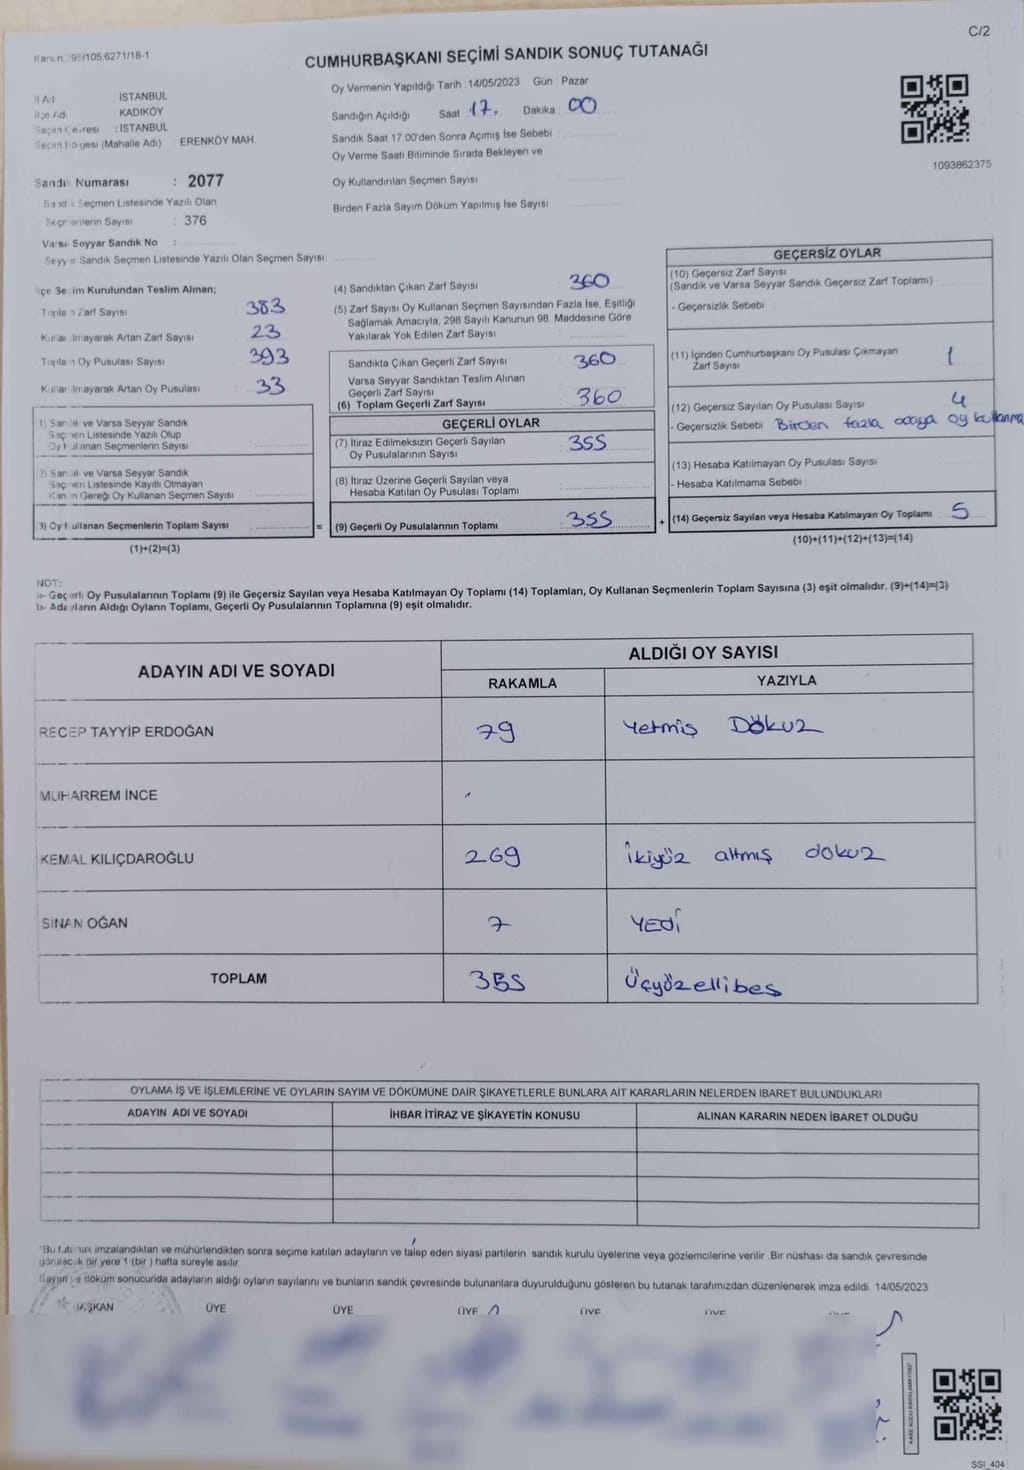 C/2
CUMHURBAŞKANI SEÇİMİ SANDIK SONUÇ TUTANAĞI
İSTANBUL
KADIKÖY
: İSTANBUL
(Mahalle Adı) ERENKÖY MAH.
Sandık Numarası : 2077
Sandık Seçmen Listesinde Yazılı Olan
Seçmenlerin Sayısı : 376
Varsa Seyyar Sandık No :
Seyyar Sandık Seçmen Listesinde Yazılı Olan Seçmen Sayısı
Oy Vermenin Yapıldığı Tarih : 14/05/2023 Gün : Pazar
Sandığın Açıldığı Saat 17, Dakika : 00
Sandık Saat 17 00'den Sonra Açımış İse Sebebi
Oy Verme Saati Bitiminde Sırada Bekleyen ve
Oy Kullandırılan Seçmen Sayısı
Birden Fazla Sayım Döküm Yapılmış İse Sayısı
1093862375
Seçim Kurulundan Teslim Alınan;
Toplam Zarf Sayısı 383
Kullanılmayarak Artan Zarf Sayısı 23
Toplam Oy Pusulası Sayısı 393
Kullanılmayarak Artan Oy Pusulası 33
1) Sandık ve Varsa Seyyar Sandık
Seçmen Listesinde Yazılı Olup
Oy Kullanan Seçmenlerin Sayısı
2) Sandık ve Varsa Seyyar Sandık
Seçmen Listesinde Kayıtlı Olmayan
Kanun Gereği Oy Kullanan Seçmen Sayısı
3) Oy Kullanan Seçmenlerin Toplam Sayısı =
(1)+(2)=(3)
(4) Sandıktan Çıkan Zarf Sayısı 360
(5) Zarf Sayısı Oy Kullanan Seçmen Sayısından Fazla İse, Eşitliği
Sağlamak Amacıyla, 298 Sayılı Kanunun 98. Maddesine Göre
Yakılarak Yok Edilen Zarf Sayısı
Sandıkta Çıkan Geçerli Zarf Sayısı 360
Varsa Seyyar Sandıktan Teslim Alınan
Geçerli Zarf Sayısı
(6) Toplam Geçerli Zarf Sayısı 360
GEÇERLİ OYLAR
(7) İtiraz Edilmeksizin Geçerli Sayılan
Oy Pusulalarının Sayısı 355
(8) İtiraz Üzerine Geçerli Sayılan veya
Hesaba Katılan Oy Pusulası Toplamı
(9) Geçerli Oy Pusulalarının Toplamı : 355 +
GEÇERSİZ OYLAR
(10) Geçersiz Zarf Sayısı
(Sandık ve Varsa Seyyar Sandık Geçersiz Zarf Toplamı)
- Geçersizlik Sebebi
(11) İçinden Cumhurbaşkanı Oy Pusulası Çıkmayan
Zarf Sayısı 1
(12) Geçersiz Sayılan Oy Pusulası Sayısı 4
- Geçersizlik Sebebi Birden fazla adaya oy kullanma
(13) Hesaba Katılmayan Oy Pusulası Sayısı
- Hesaba Katılmama Sebebi :
(14) Geçersiz Sayılan veya Hesaba Katılmayan Oy Toplamı 5
(10)+(11)+(12)+(13)=(14)
NOT:
a- Geçerli Oy Pusulalarının Toplamı (9) ile Geçersiz Sayılan veya Hesaba Katılmayan Oy Toplamı (14) Toplamları, Oy Kullanan Seçmenlerin Toplam Sayısına (3) eşit olmalıdır. (9)+(14)=(3)
b- Adayların Aldığı Oyların Toplamı, Geçerli Oy Pusulalarının Toplamına (9) eşit olmalıdır.
ADAYIN ADI VE SOYADI
ALDIĞI OY SAYISI
RAKAMLA YAZIYLA
RECEP TAYYİP ERDOĞAN 79 Yetmiş Dokuz
MUHARREM İNCE
KEMAL KILIÇDAROĞLU 269 ikiyüz altmış dokuz
SİNAN OĞAN 7 YEDİ
TOPLAM 355 Üçyüzellibeş
OYLAMA İŞ VE İŞLEMLERİNE VE OYLARIN SAYIM VE DÖKÜMÜNE DAİR ŞİKAYETLERLE BUNLARA AİT KARARLARIN NELERDEN İBARET BULUNDUKLARI
ADAYIN ADI VE SOYADI İHBAR İTİRAZ VE ŞİKAYETİN KONUSU ALINAN KARARIN NEDEN İBARET OLDUĞU
Bu tutanak imzalandıktan ve mühürlendikten sonra seçime katılan adayların ve talep eden siyasi partilerin sandık kurulu üyelerine veya gözlemcilerine verilir. Bir nüshası da sandık çevresinde
görülecek bir yere 1 (bir) hafta süreyle asılır.
Sayım ve döküm sonucunda adayların aldığı oyların sayılarını ve bunların sandık çevresinde bulunanlara duyurulduğunu gösteren bu tutanak tarafımızdan düzenlenerek imza edildi. 14/05/2023
BAŞKAN ÜYE ÜYE ÜYE ÜYE ÜYE
SSI_404